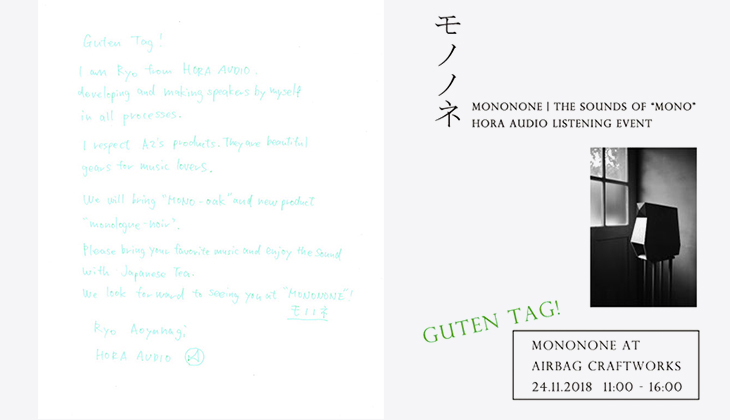 Guten Tag!
I am Ryo from HORA AUDIO,
developing and making speakers by myself
in all processes.
I respect A2's products. They are beautiful
gears for music lovers.
We will bring "MONO-oak" and new product
"monologue-noir".
Please bring your favorite music and enjoy the sound
with Japanese Tea.
We look forward to seeing you at "MONONONE"!
モノノネ
Ryo Aoyanagi
HORA AUDIO
モノノネ
MONONONE | THE SOUNDS OF "MONO"
HORA AUDIO LISTENING EVENT
GUTEN TAG!
MONONONE AT
AIRBAG CRAFTWORKS
24.11.2018 11:00 - 16:00